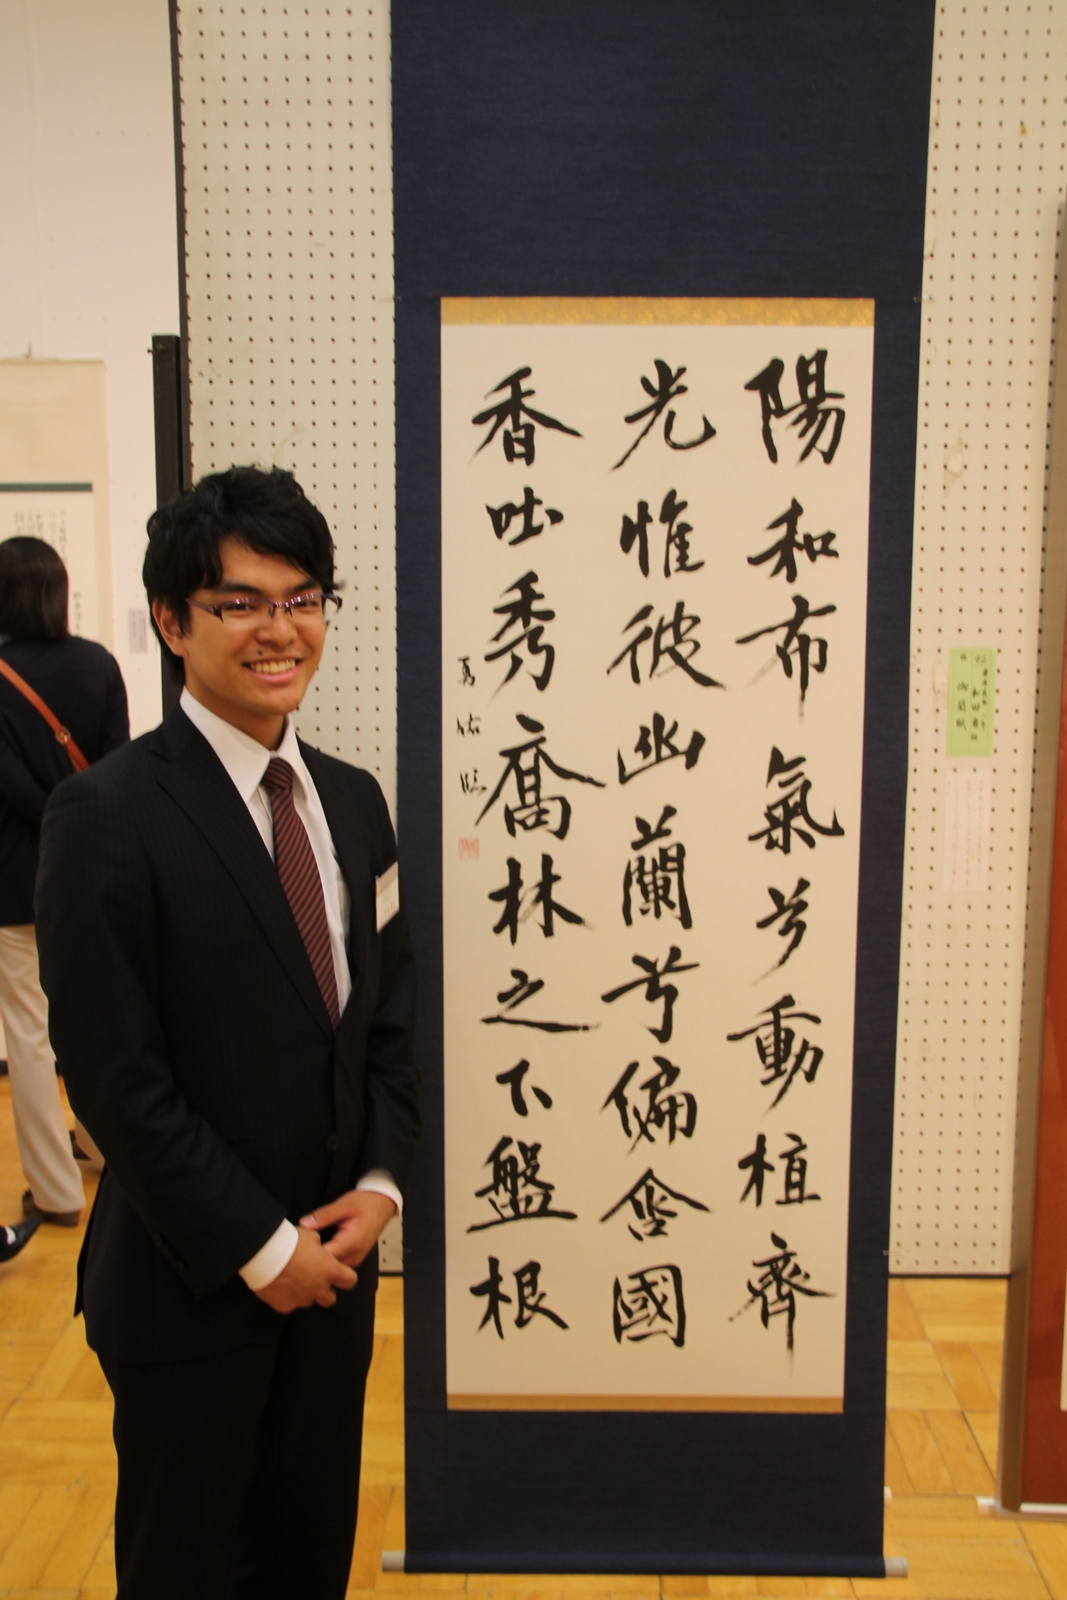 陽和布氣兮動植齊
光惟彼幽蘭兮偏含國
香吐秀喬林之下盤根
臨